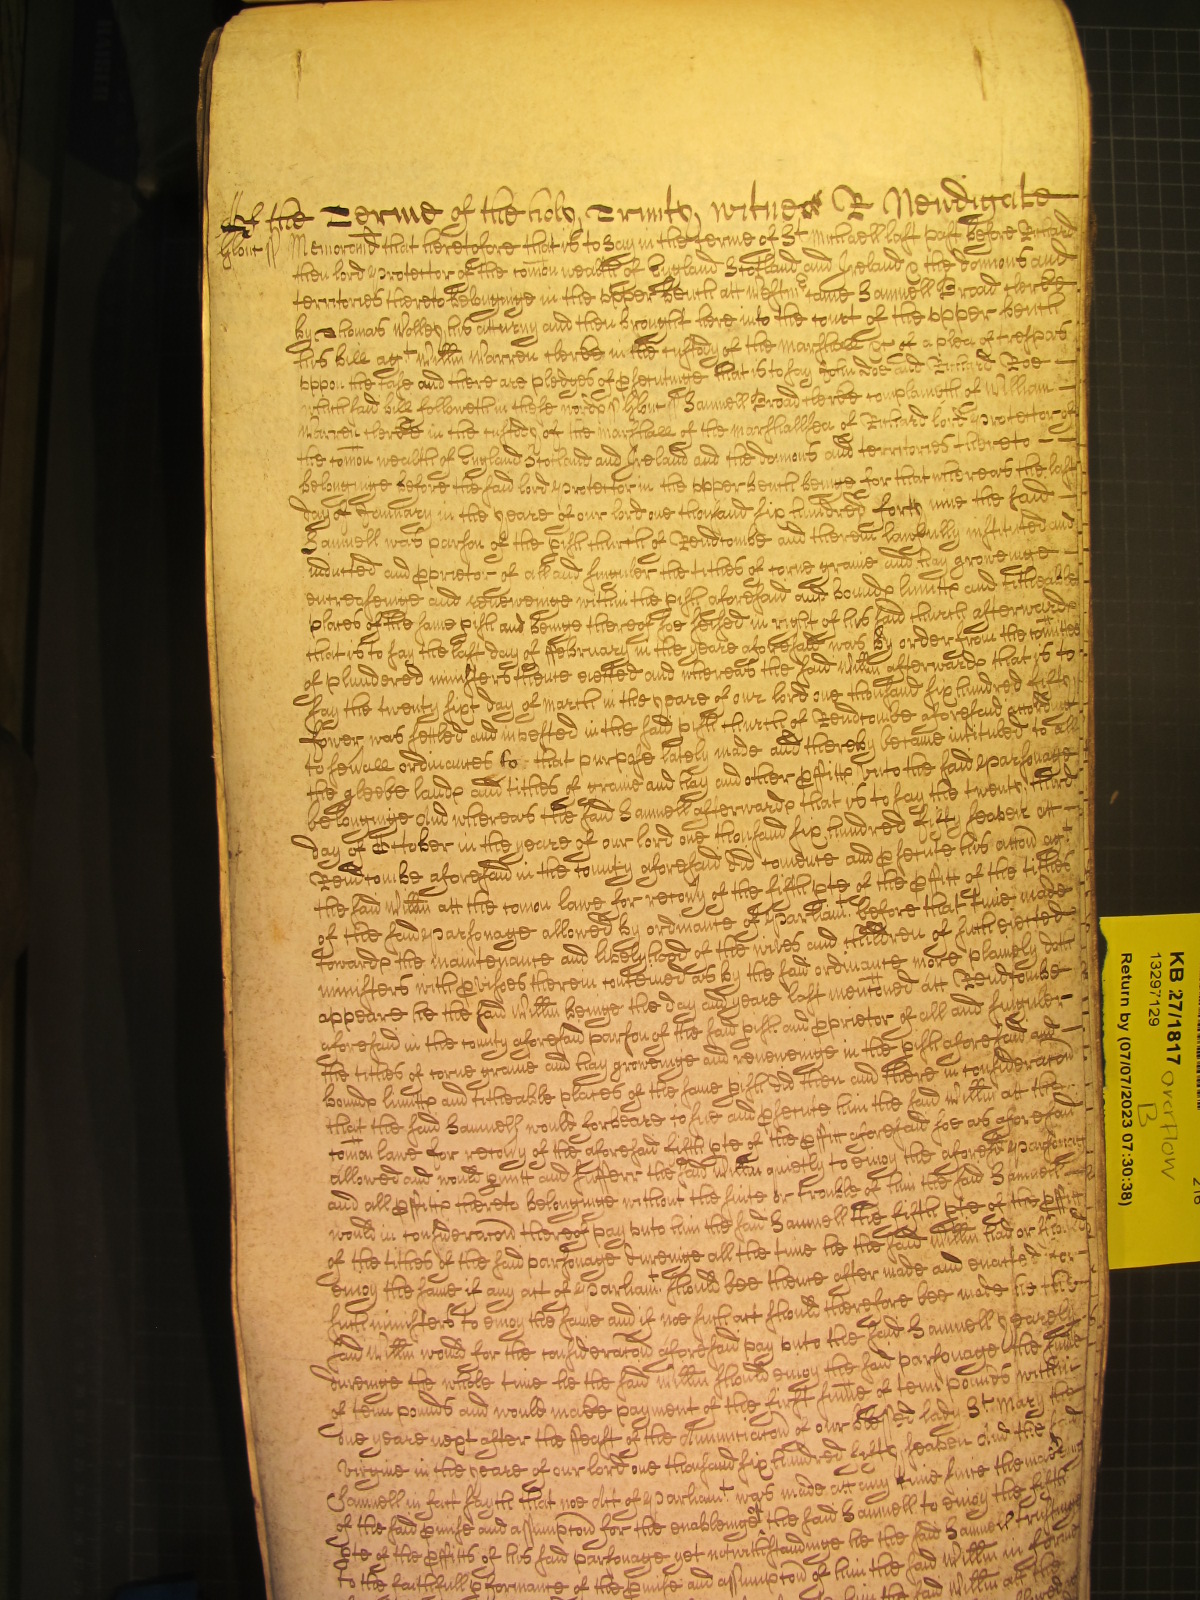 Of the Terme of the holy Trinity witnes R Newdigate
Glouc ss Memorand that heretofore that is to say in the terme of St Michaell last past before Richard
then lord Protector of the comon wealth of England Scotland and Ireland & the domions and
territories thereto belonginge in the upper bench att Westmr came Samuell Broad clerke
by Thomas Wolley his atturny and then brought here into the court of the upper bench
his bill agt Willm Warren clerke in the custody of the marshall &c of a plea of trespas
uppon the case and there are pledges of psecutinge that is to say John Doe and Richard Roe
which said bill followeth in these words Glouc ss Samuell Broad clerke complaineth of William
Warren clerke in the custody of the marshall of the marshallsea of Richard lord Protector of
the comon wealth of England Scotland and Ireland and the domions and territories thereto
belonginge before the said lord Protector in the upper bench beinge for that whereas the last
day of January in the yeare of our lord one thousand six hundred forty nine the said
Samuell was parson of the pish church of Rendcombe and therein lawfully instituted and
inducted and pprietor of all and singuler the tithes of corne graine and hay groweinge
encreaseinge and reneweinge within the pish aforesaid and bounds limitts and titheable
places of the same pish and beinge thereof soe seised in right of his said church afterwards
that is to say the last day of February in the yeare aforesaid was by order from the comittee
of plundered ministers thence eiected and whereas the said Willm afterwards that is to
say the twenty sixt day of march in the yeare of our lord one thousand six hundred fifty
fower was setled and invested in the said pish church of Rendcombe aforesaid accordinge
to severall ordinances to that purpose lately made and thereby became intituled to all
the gleebe lands and tithes of graine and hay and other pfitts unto the said Parsonage
belonginge And whereas the said Samuell afterwards that is to say the twenty third
day of October in the yeare of our lord one thousand six hundred fifty seaven att
Rendcombe aforesaid in the county aforesaid did comence and psecute his accon agt
the said Willm att the comon lawe for recovy of the fifth pte of the pfitt of the tithes
of the said Parsonage allowed by ordinance of Parliamt before that time made
towards the maintenance and livelyhood of the wives and children of such eiected
ministers with pvisoes therein conteined as by the said ordinance more plainely doth
appeare he the said Willm beinge the day and yeare last mentoned att Rendcombe
aforesaid in the county aforesaid parson of the said pish and pprietor of all and singuler
the tithes of corne graine and hay groweinge and reneweinge in the pish aforesaid and
bounds limitts and titheable places of the same pish did then and there in consideracon
that the said Samuell would forbeare to sue and psecute him the said Willm att the
comon lawe for recovy of the aforesaid fifth pte of the pfitt aforesaid soe as aforesaid
allowed and would pmit and suffer the said Willm quietly to enioy the aforesd Parsonage
and all pfitts thereto belonginge without the suite or trouble of him the said Samuell
would in consideracon thereof pay unto him the said Samuell the fifth pte of the pfitt
of the tithes of the said parsonage dureinge all the time he the said Willm had or
enioy the same if any act of Parliamt should bee thence after made and enacted for
such ministers to enioy the same and if noe such act should therefore bee made he the
said Willm would for the consideracon aforesaid pay unto the said Samuell yearely
dureinge the whole time he the said Willm should enioy the said parsonage the sume
of tenn pounds and would make payment of the first sume of tenn pounds within
one yeare next after the feast of the Anuntiacon of our blessed lady St Mary the
virgine in the yeare of our lord one thousand six hundred fifty seaven And the said
Samuell in fact sayth that noe Act of Parliamt was made att any time since the makeing
of the said pmise and assumpcon for the enableinge the said Samuell to enioy the fifth
pte of the pfitts of his said parsonage yet notwithstandinge he the said Samuell trustinge
to the faithfull pformance of the pmise and assumpcon of him the said Willm in forme
KB 27/1817
13297129
Return by (07/07/2023 07:30:38)
overflow
B